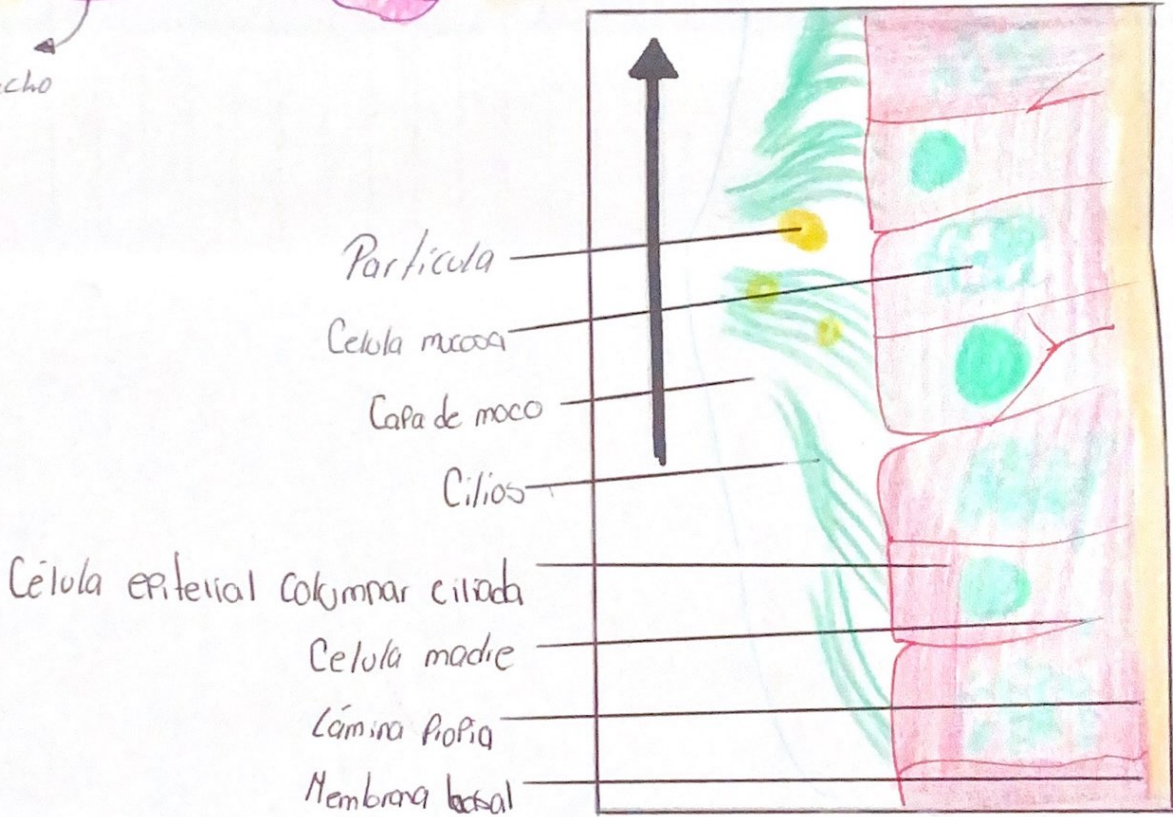 cho
Partícula
Celula mucosa
Capa de moco
Cilios
Célula epiterial columnar ciliada
Celula madre
Lámina Propia
Membrana basal